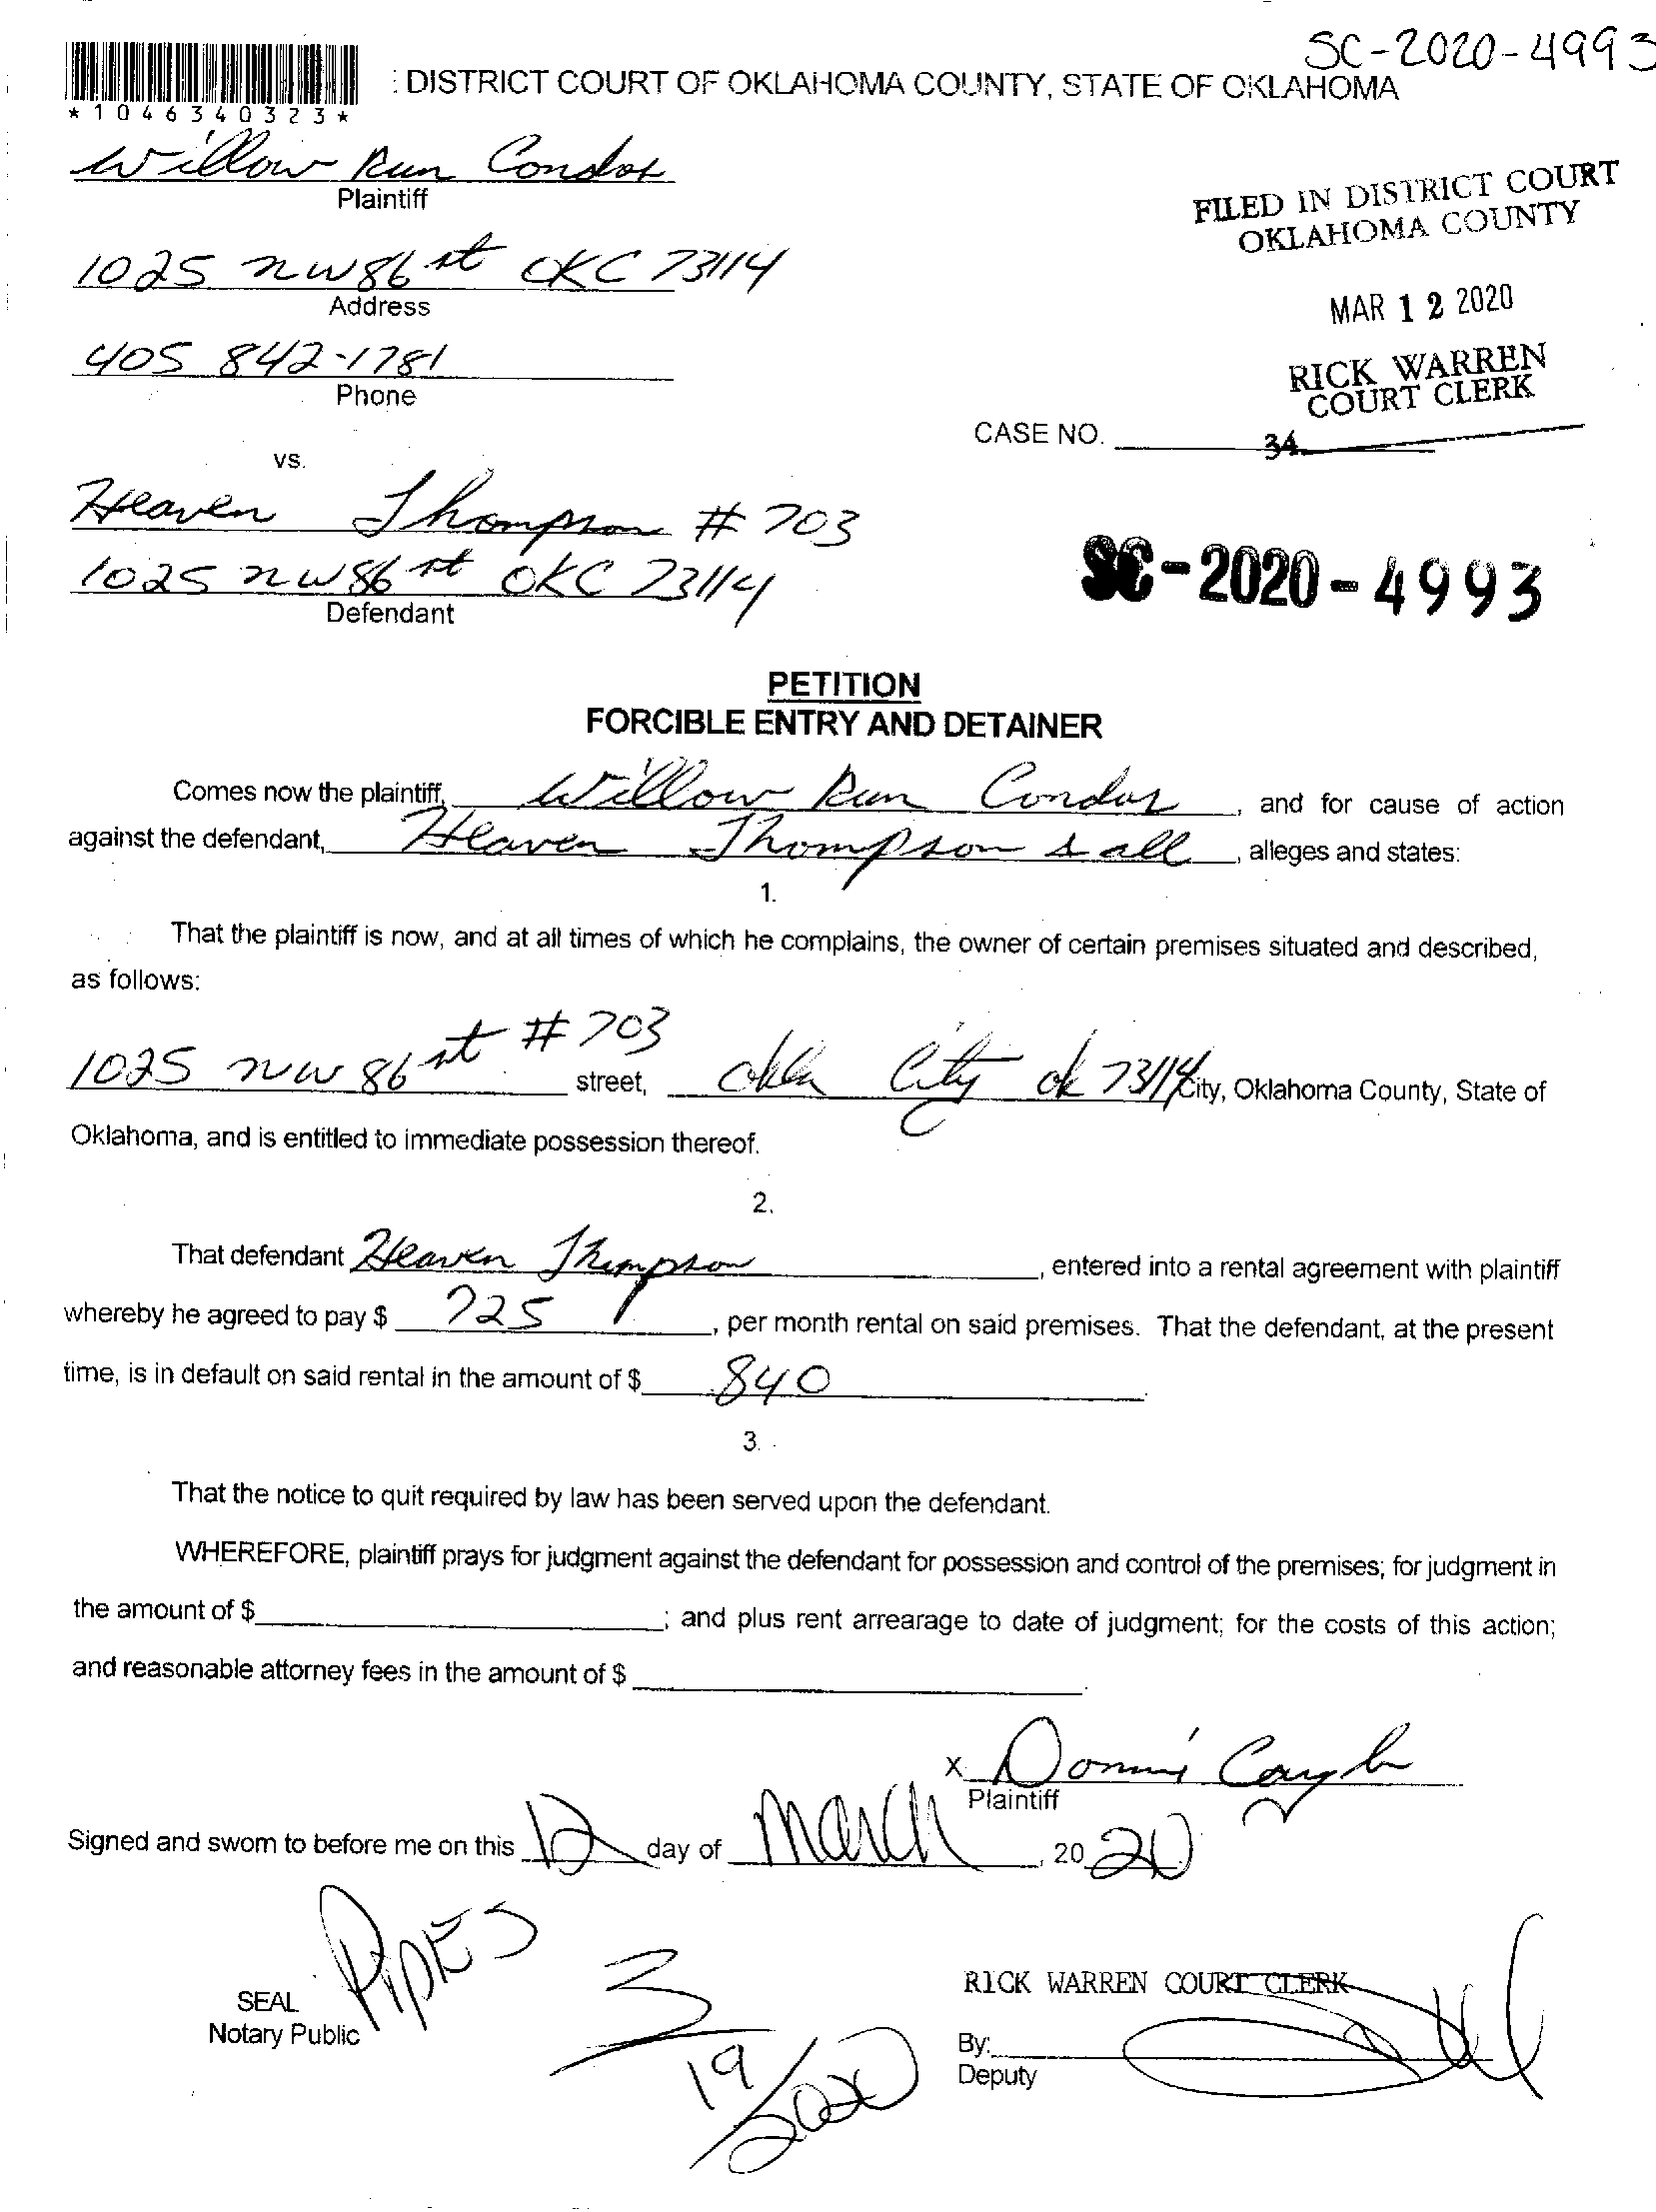 SC-2020-4993
: DISTRICT COURT OF OKLAHOMA COUNTY, STATE OF OKLAHOMA
*1046340323*
Willow Run Condos
Plaintiff
FILED IN DISTRICT COURT
OKLAHOMA COUNTY
1025 NW 86 st OKC 73114
Address
MAR 12 2020
405 842-1781
Phone
RICK WARREN
COURT CLERK
CASE NO.
34
vs.
Heaven Thompson # 703
1025 NW 86 st OKC 73114
Defendant
SC-2020-4993
PETITION
FORCIBLE ENTRY AND DETAINER
Comes now the plaintiff, Willow Run Condos, and for cause of action
against the defendant, Heaven Thompson & all, alleges and states:
1.
That the plaintiff is now, and at all times of which he complains, the owner of certain premises situated and described,
as follows:
1025 NW 86 st # 703 street, Okla City ok 73114 City, Oklahoma County, State of
Oklahoma, and is entitled to immediate possession thereof.
2.
That defendant Heaven Thompson, entered into a rental agreement with plaintiff
whereby he agreed to pay $ 725, per month rental on said premises. That the defendant, at the present
time, is in default on said rental in the amount of $ 840.
3.
That the notice to quit required by law has been served upon the defendant.
WHEREFORE, plaintiff prays for judgment against the defendant for possession and control of the premises; for judgment in
the amount of $; and plus rent arrearage to date of judgment; for the costs of this action;
and reasonable attorney fees in the amount of $.
X Donnie
Plaintiff
Signed and sworn to before me on this 12 day of March, 20 20
Pipes
3/19/2020
SEAL
Notary Public
RICK WARREN COURT CLERK
By:
Deputy